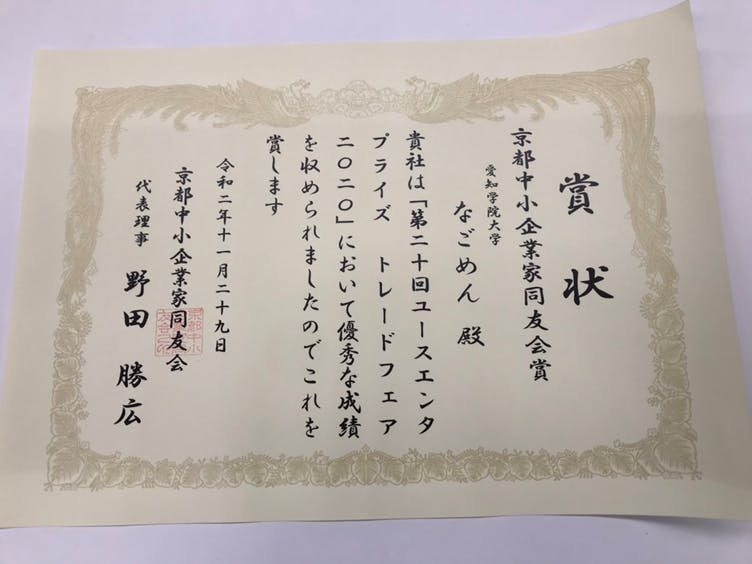 賞状
京都中小企業家同友会賞
愛知学院大学
なごめん 殿
貴社は「第二十回ユースエンタ
プライズ トレードフェア
二〇二〇」において優秀な成績
を収められましたのでこれを
賞します
令和二年十一月二十九日
京都中小企業家同友会
代表理事 野田 勝広